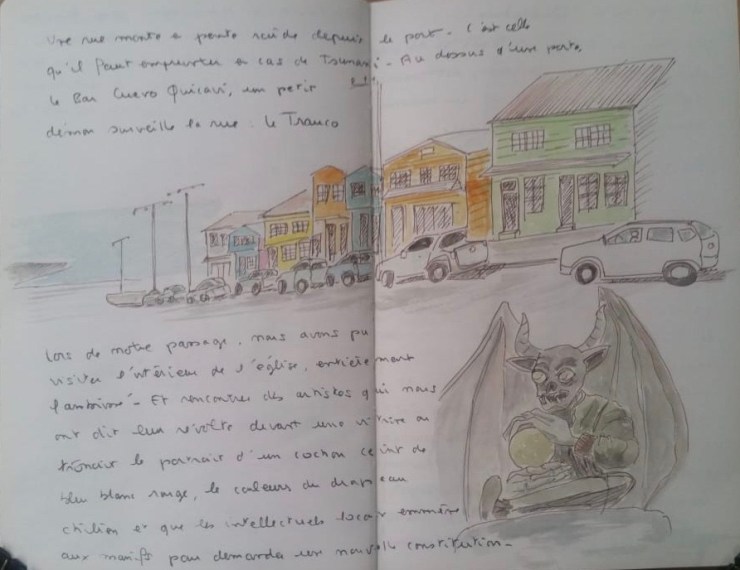 Une rue monte à pente raide depuis le port - C'est celle
qu'il faut emprunter en cas de Tsunami - Au dessus d'une porte,
le Bar Cuevo Quicavi, un petit
démon surveille la rue : le Trauco
Lors de notre passage, nous avons pu
visiter l'intérieur de l'église, entièrement
lambrissé - Et rencontrer des artistes qui nous
ont dit leur révolte devant une vitrine où
trônait le portrait d'un cochon ceint de
bleu blanc rouge, les couleurs du drapeau
chilien et que les intellectuels locaux emmène
aux manifs pour demander une nouvelle constitution -